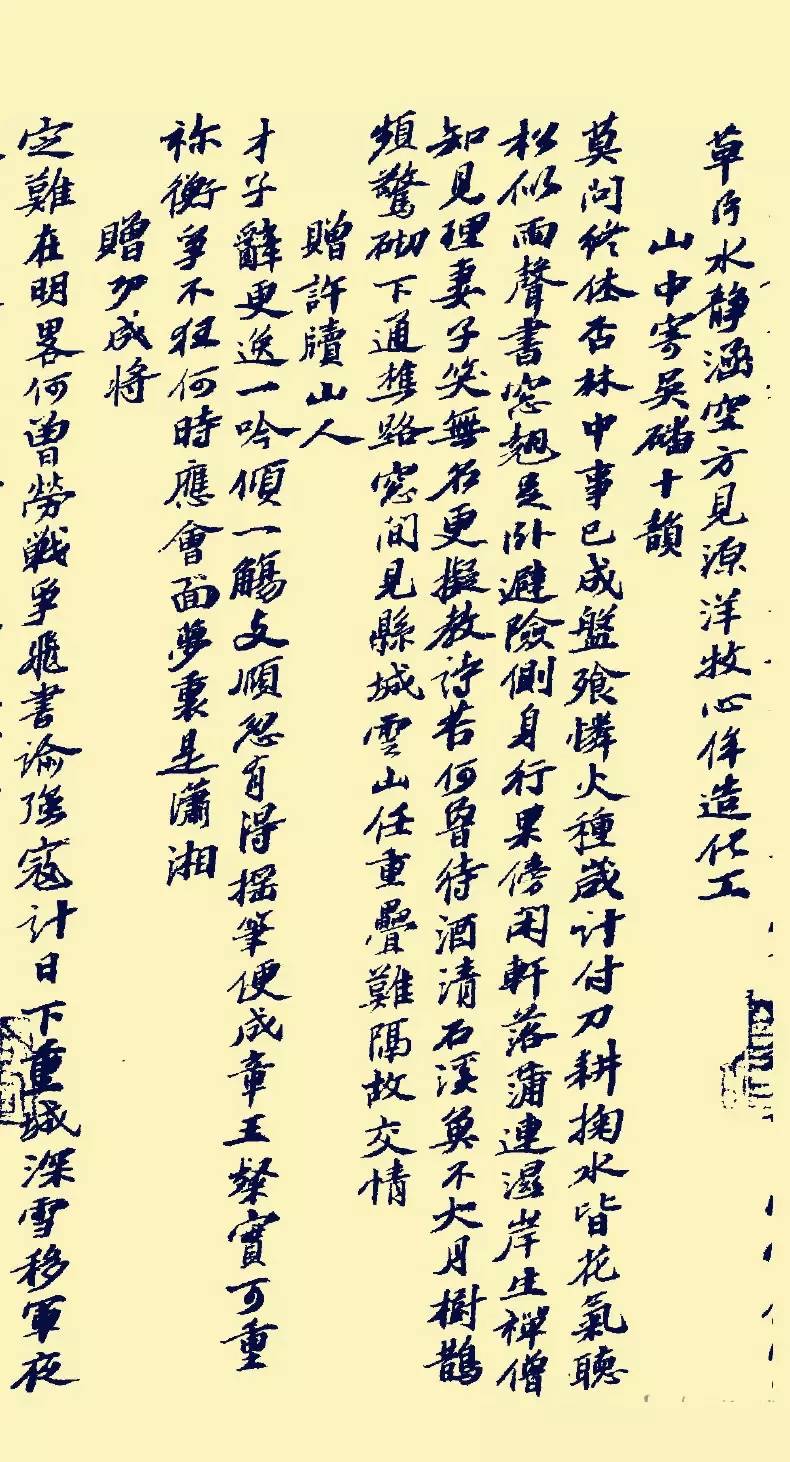 草河水靜涵空方見源洋牧心侔造化工
山中寄吳磻十韻
莫問終休否林中事已成盤飧憐火種歲計付刀耕掬水皆花氣聽
松似雨聲書窓翹足卧避險側身行果傍閑軒落蒲連濕岸生禪僧
知見理妻子笑無名更擬教詩苦何曾待酒清石溪魚不大月樹鵲
頻驚砌下通樵路窓間見縣城雲山任重疊難隔故交情
贈許牘山人
才子辭更逸一吟傾一觴支頤忽有得搖筆便成章王粲實可重
祢衡爭不狂何時應會面夢裏是瀟湘
贈功成將
定難在明畧何曾勞戦爭飛書論強寇計日下重城深雪移軍夜